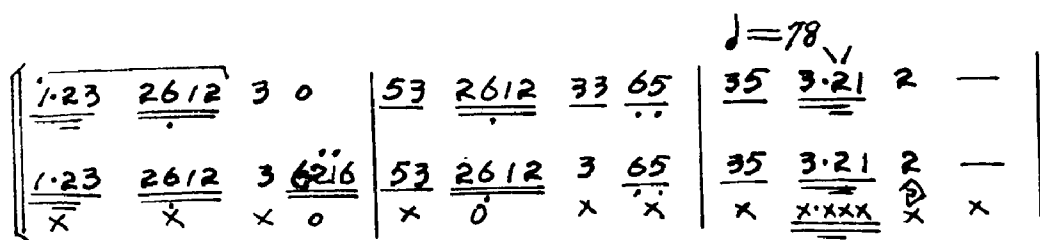 ♩=78
1·23 2612 3 0 | 53 2612 33 65 | 35 3·21 2 — |
1·23 2612 3 6216 | 53 2612 3 65 | 35 3·21 2 — |
x x x 0 x 0 x x x x·xxx x x